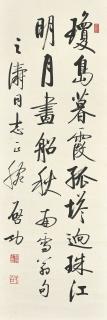 瓊島暮霞孤塔迥珠江
明月畫船秋 南雪翁句
之濤同志正腕 启功